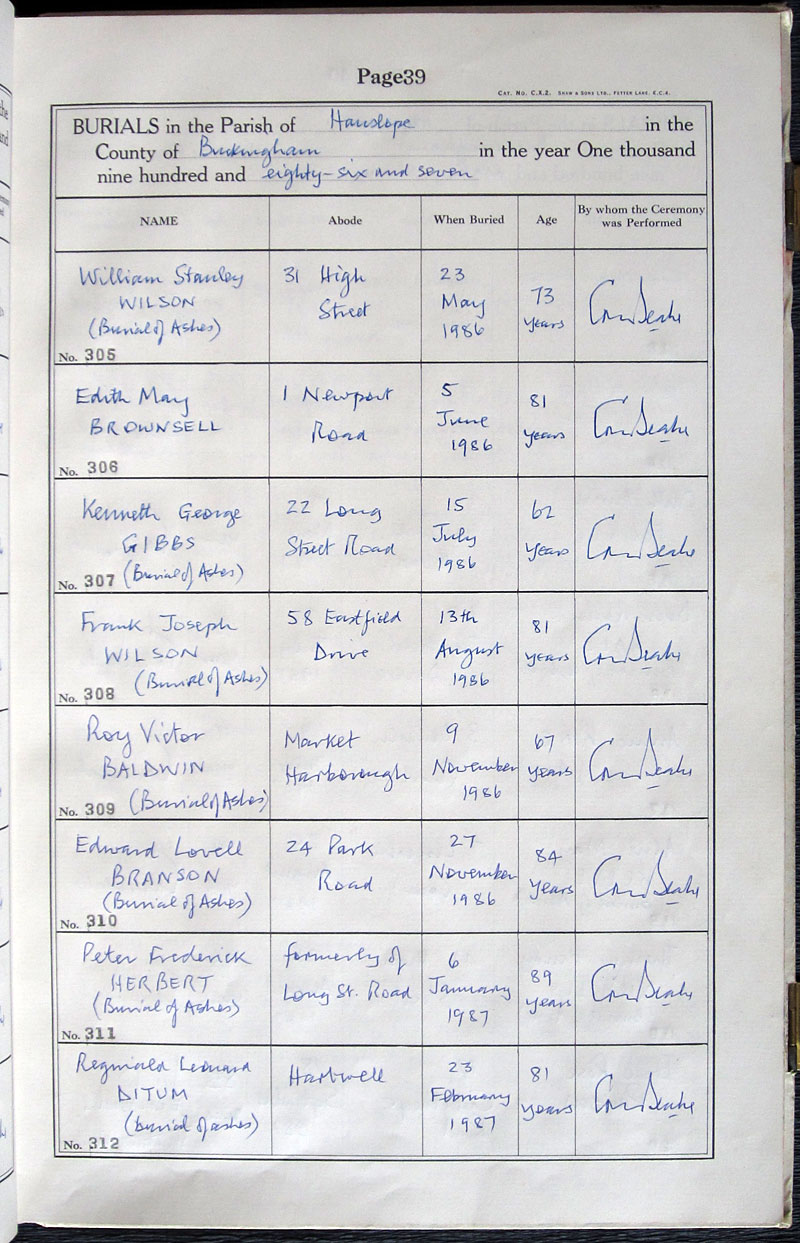 Page39
CAT. NO. C.X.2. SHAW & SONS LTD., FETTER LANE, E.C.4.
BURIALS in the Parish of Hanslope in the
County of Buckingham in the year One thousand
nine hundred and eighty-six and seven
NAME Abode When Buried Age By whom the Ceremony was Performed
William Stanley
WILSON
(Burial of Ashes)
No. 305
31 High
Street
23
May
1986
73
years
Edith May
BROWNSELL
No. 306
1 Newport
Road
5
June
1986
81
years
Kenneth George
GIBBS
No. 307 (Burial of Ashes)
22 Long
Street Road
15
July
1986
62
years
Frank Joseph
WILSON
(Burial of Ashes)
No. 308
58 Eastfield
Drive
13th
August
1986
81
years
Roy Victor
BALDWIN
No. 309 (Burial of Ashes)
Market
Harborough
9
November
1986
67
years
Edward Lovell
BRANSON
(Burial of Ashes)
No. 310
24 Park
Road
27
November
1986
84
years
Peter Frederick
HERBERT
(Burial of Ashes)
No. 311
formerly of
Long St. Road
6
January
1987
89
years
Reginald Leonard
DITUM
(burial of ashes)
No. 312
Hartwell
23
February
1987
81
years